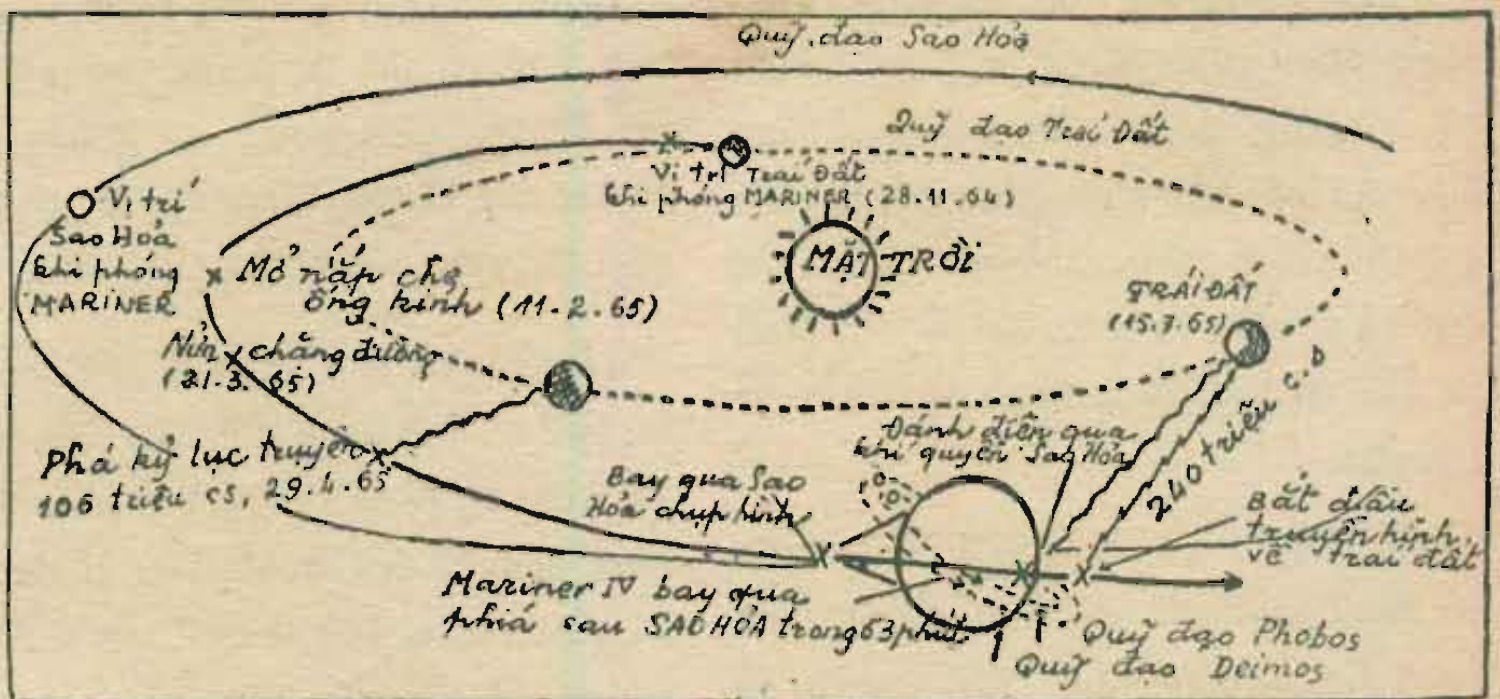 Quỹ đạo Sao Hỏa
Quỹ đạo Trái Đất
Vị trí Trái Đất
khi phóng MARINER (28.11.64)
Vị trí
Sao Hỏa
khi phóng
MARINER
MẶT TRỜI
Mở nắp che
ống kính (11.2.65)
TRÁI ĐẤT
(15.7.65)
Nửa chặng đường
(21.3.65)
240 triệu c.s
Phá kỷ lục truyền
106 triệu cs, 29.4.65
Đánh điện qua
khí quyển Sao Hỏa
Bay qua Sao
Hỏa chụp hình
Bắt đầu
truyền hình
về trái đất
Mariner IV bay qua
phiá sau SAO HỎA trong 63 phút
Quỹ đạo Phobos
Quỹ đạo Deimos